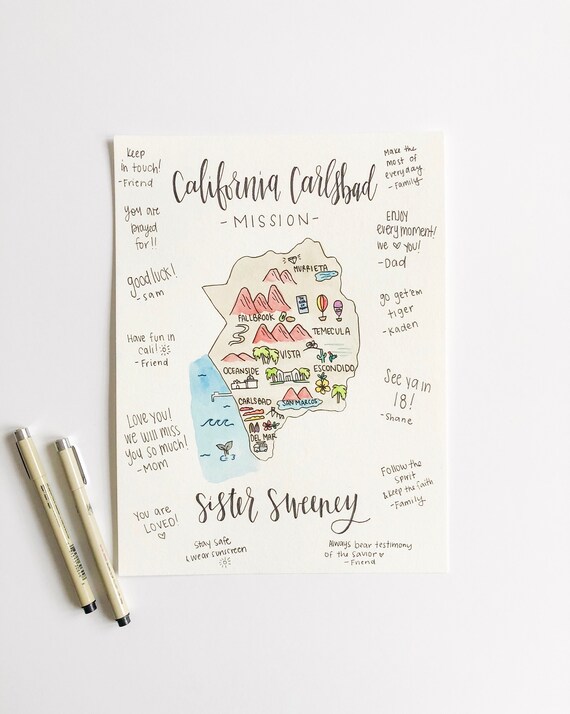 California Carlsbad
- MISSION -
Keep
in touch!
- Friend
You are
prayed
for!!
good luck!
- Sam
Have fun in
Cali!
- Friend
Love you!
we will miss
you so much!
- MOM
You are
LOVED!
Stay safe
& wear sunscreen
Make the
most of
everyday
- Family
ENJOY
every moment!
we ♥ you!
- Dad
go get'em
tiger
- Kaden
See ya in
18!
- Shane
Follow the
Spirit
& keep the faith
- Family
Always bear testimony
of the Savior ♥
- Friend
MURRIETA
FALLBROOK
TEMECULA
VISTA
OCEANSIDE
ESCONDIDO
CARLSBAD
SAN MARCOS
DEL MAR
Sister Sweeney